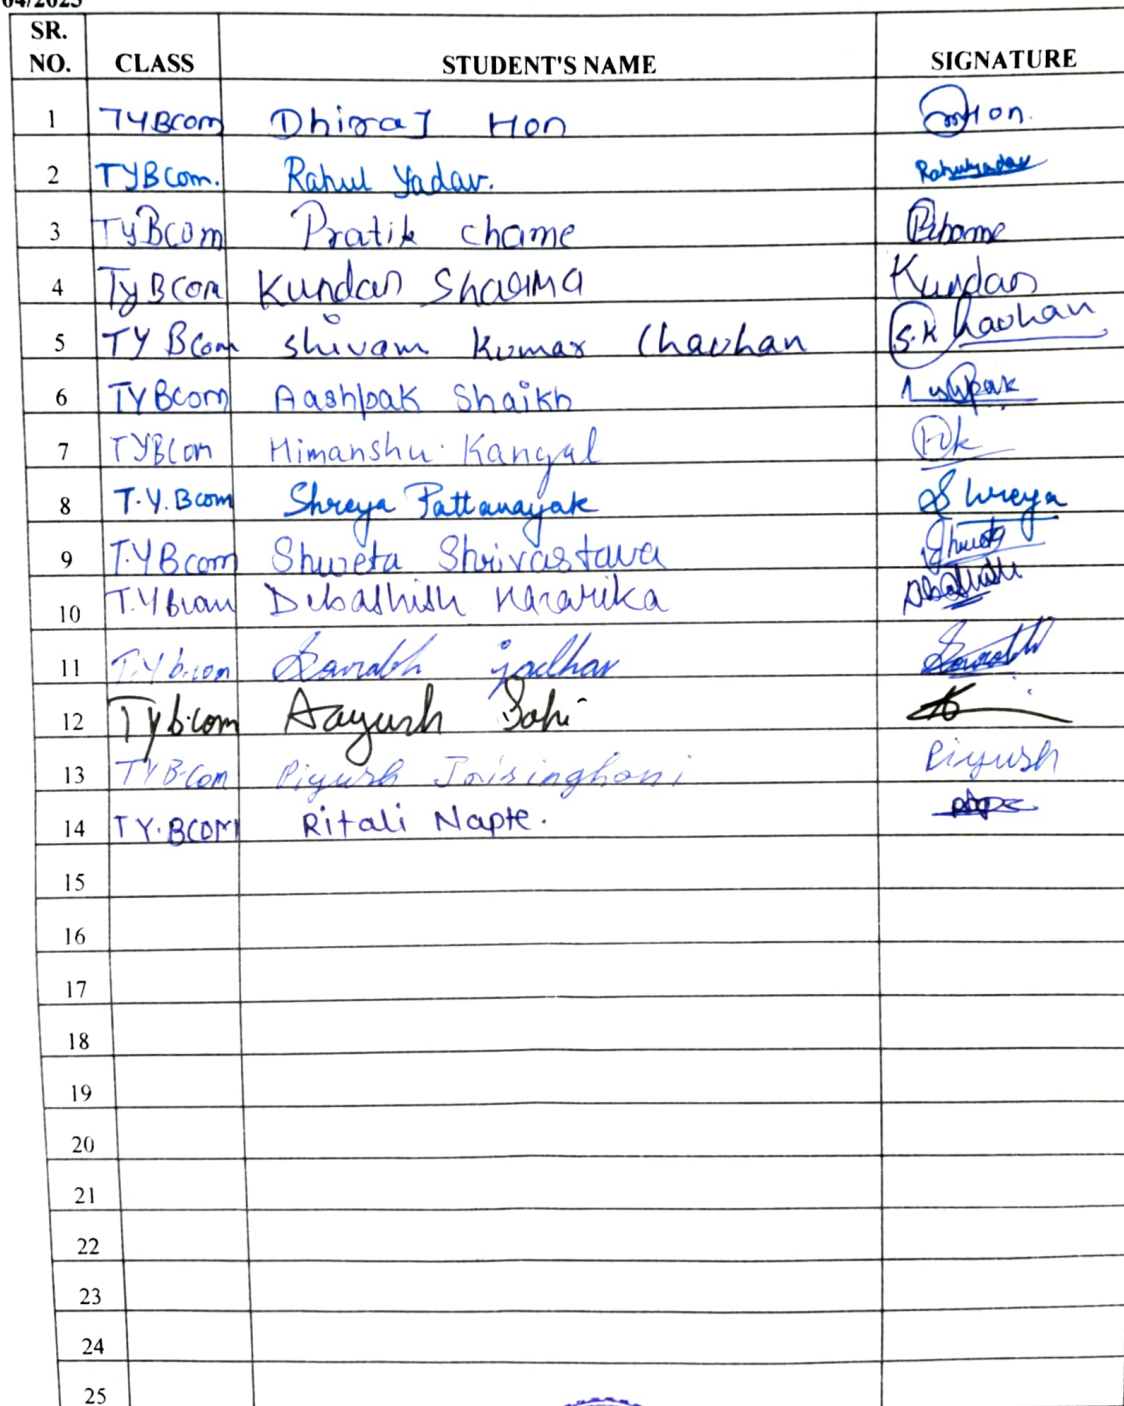 04/2023
SR. NO. CLASS STUDENT'S NAME SIGNATURE
1 TYBcom Dhiraj Hon Hon.
2 TYBcom. Rahul Yadav. Rahulyadav
3 TyBcom Pratik chame Pchame
4 TyBcom Kundan Sharma Kundan
5 TY Bcom shivam Kumar Chavhan S.K Chavhan
6 TYBcom Aashpak Shaikh Ashpak
7 TYBCom Himanshu Kangal Hk
8 T.Y.Bcom Shreya Pattanayak Shreya
9 T.YBcom Shweta Shrivastava Shweta
10 T.YBcom Debashish Hazarika Debashish
11 T.Yb.com Saurabh jadhav Saurabh
12 Tyb.com Aayush
13 TYB.Com Piyush Jaisinghani Piyush
14 TY.BCOM Ritali Napte.
15
16
17
18
19
20
21
22
23
24
25